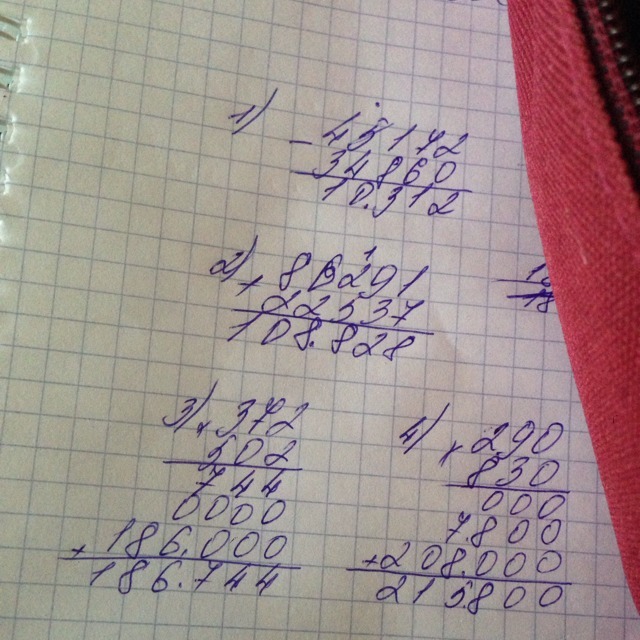 1) - 45172
34860
10.312
2) + 86291
22537
108.828
3) x 372
502
744
0000
+ 186.000
186.744
4) x 290
830
000
7.800
+ 208.000
215800
18